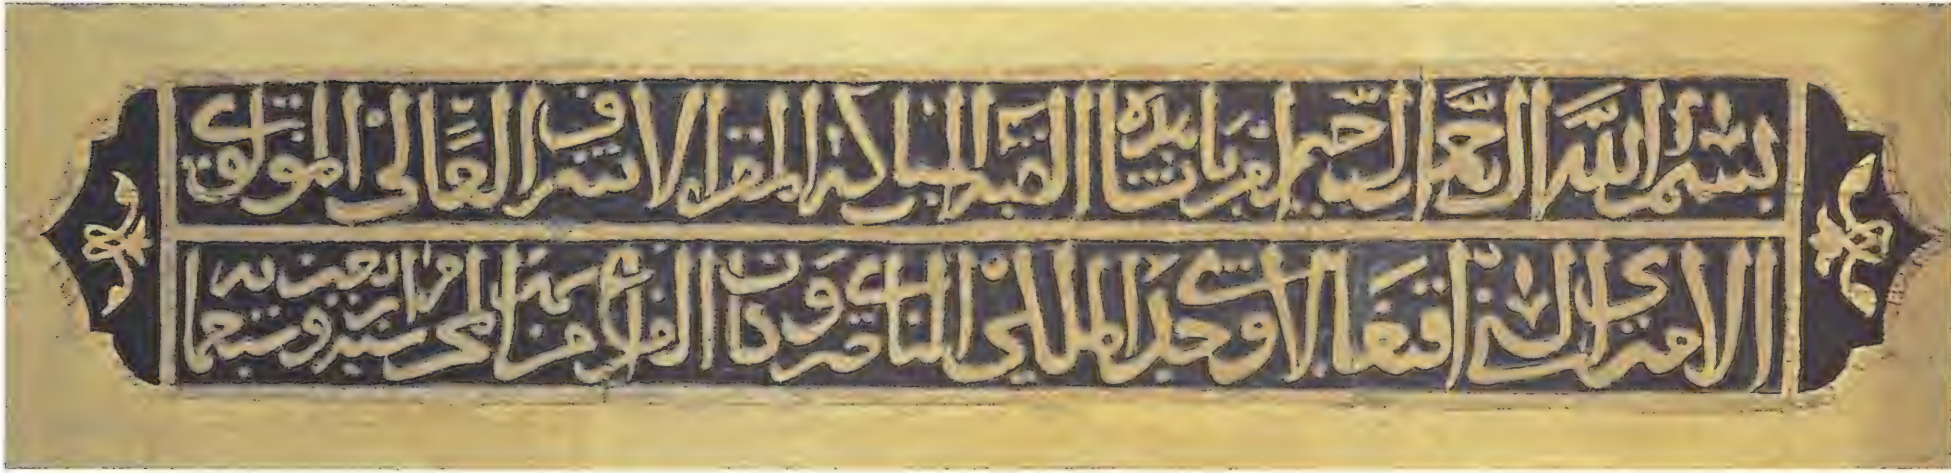 بسم الله الرحمن الرحيم امر بانشا هذه القبة المباركة المقر الاشرف العالي المولوي
الاميري السيفي اقبغا الاوحدي الملكي الناصري وكان الفراغ من المحرم سنة اربعين وسبعمايه